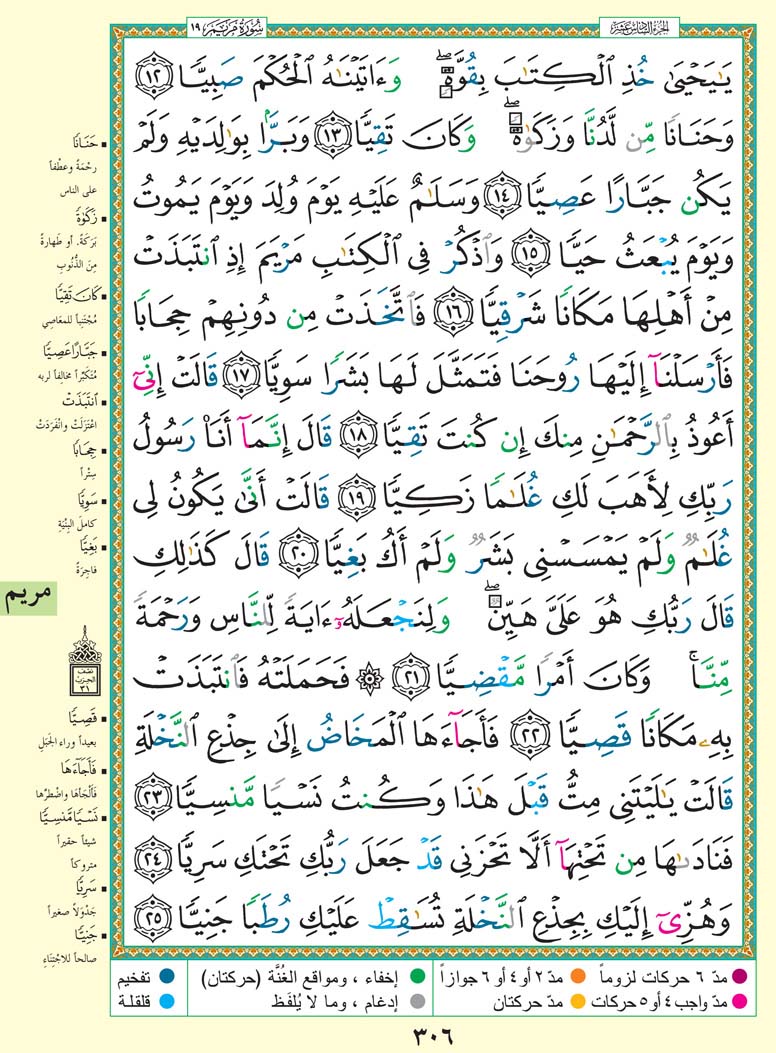 سُورَةُ مَرْيَمَ ١٩
الجُزءُ السَّادِسَ عَشَرَ
يَـٰيَحۡيَىٰ خُذِ ٱلۡكِتَـٰبَ بِقُوَّةٖۖ وَءَاتَيۡنَـٰهُ ٱلۡحُكۡمَ صَبِيّٗا ١٢
وَحَنَانٗا مِّن لَّدُنَّا وَزَكَوٰةٗۖ وَكَانَ تَقِيّٗا ١٣ وَبَرَّۢا بِوَٰلِدَيۡهِ وَلَمۡ
يَكُن جَبَّارًا عَصِيّٗا ١٤ وَسَلَـٰمٌ عَلَيۡهِ يَوۡمَ وُلِدَ وَيَوۡمَ يَمُوتُ
وَيَوۡمَ يُبۡعَثُ حَيّٗا ١٥ وَٱذۡكُرۡ فِى ٱلۡكِتَـٰبِ مَرۡيَمَ إِذِ ٱنتَبَذَتۡ
مِنۡ أَهۡلِهَا مَكَانٗا شَرۡقِيّٗا ١٦ فَٱتَّخَذَتۡ مِن دُونِهِمۡ حِجَابٗا
فَأَرۡسَلۡنَآ إِلَيۡهَا رُوحَنَا فَتَمَثَّلَ لَهَا بَشَرٗا سَوِيّٗا ١٧ قَالَتۡ إِنِّىٓ
أَعُوذُ بِٱلرَّحۡمَـٰنِ مِنكَ إِن كُنتَ تَقِيّٗا ١٨ قَالَ إِنَّمَآ أَنَا۠ رَسُولُ
رَبِّكِ لِأَهَبَ لَكِ غُلَـٰمٗا زَكِيّٗا ١٩ قَالَتۡ أَنَّىٰ يَكُونُ لِى
غُلَـٰمٞ وَلَمۡ يَمۡسَسۡنِى بَشَرٞ وَلَمۡ أَكُ بَغِيّٗا ٢٠ قَالَ كَذَٰلِكِ
قَالَ رَبُّكِ هُوَ عَلَىَّ هَيِّنٞۖ وَلِنَجۡعَلَهُۥٓ ءَايَةٗ لِّلنَّاسِ وَرَحۡمَةٗ
مِّنَّاۚ وَكَانَ أَمۡرٗا مَّقۡضِيّٗا ٢١ ۞ فَحَمَلَتۡهُ فَٱنتَبَذَتۡ
بِهِۦ مَكَانٗا قَصِيّٗا ٢٢ فَأَجَآءَهَا ٱلۡمَخَاضُ إِلَىٰ جِذۡعِ ٱلنَّخۡلَةِ
قَالَتۡ يَـٰلَيۡتَنِى مِتُّ قَبۡلَ هَـٰذَا وَكُنتُ نَسۡيٗا مَّنسِيّٗا ٢٣
فَنَادَىٰهَا مِن تَحۡتِهَآ أَلَّا تَحۡزَنِى قَدۡ جَعَلَ رَبُّكِ تَحۡتَكِ سَرِيّٗا ٢٤
وَهُزِّىٓ إِلَيۡكِ بِجِذۡعِ ٱلنَّخۡلَةِ تُسَـٰقِطۡ عَلَيۡكِ رُطَبٗا جَنِيّٗا ٢٥
حَنَانًا
رحْمَةً وعطْفاً
على الناس
زَكَوٰةً
بَرَكَةً، أو طَهارةً
مِنَ الذُّنُوبِ
كَانَ تَقِيًّا
مُجْتَنِباً للمَعاصِي
جَبَّارًا عَصِيًّا
مُتَكَبِّراً مخالِفاً لربه
ٱنتَبَذَتْ
اعْتَزَلَتْ وانْفَرَدَتْ
حِجَابًا
سِتْراً
سَوِيًّا
كاملَ البِنْيَةِ
بَغِيًّا
فاجِرَةً
مريم
نصف
الحزب
٣١
قَصِيًّا
بعيداً وراءَ الجَبَلِ
فَأَجَآءَهَا
فَأَلْجَأَهَا واضْطَرَّها
نَسْيًا مَّنسِيًّا
شيئاً حقيراً
متروكاً
سَرِيًّا
جَدْوَلاً صغيراً
جَنِيًّا
صالحاً للاجْتِنَاءِ
مدّ ٦ حركات لزوماً مدّ ٢ أو ٤ أو ٦ جوازاً إخفاء ، ومواقع الغُنَّة (حركتان) تفخيم
مدّ واجب ٤ أو ٥ حركات مدّ حركتان إدغام ، وما لا يُلفَظ قلقلة
٣٠٦